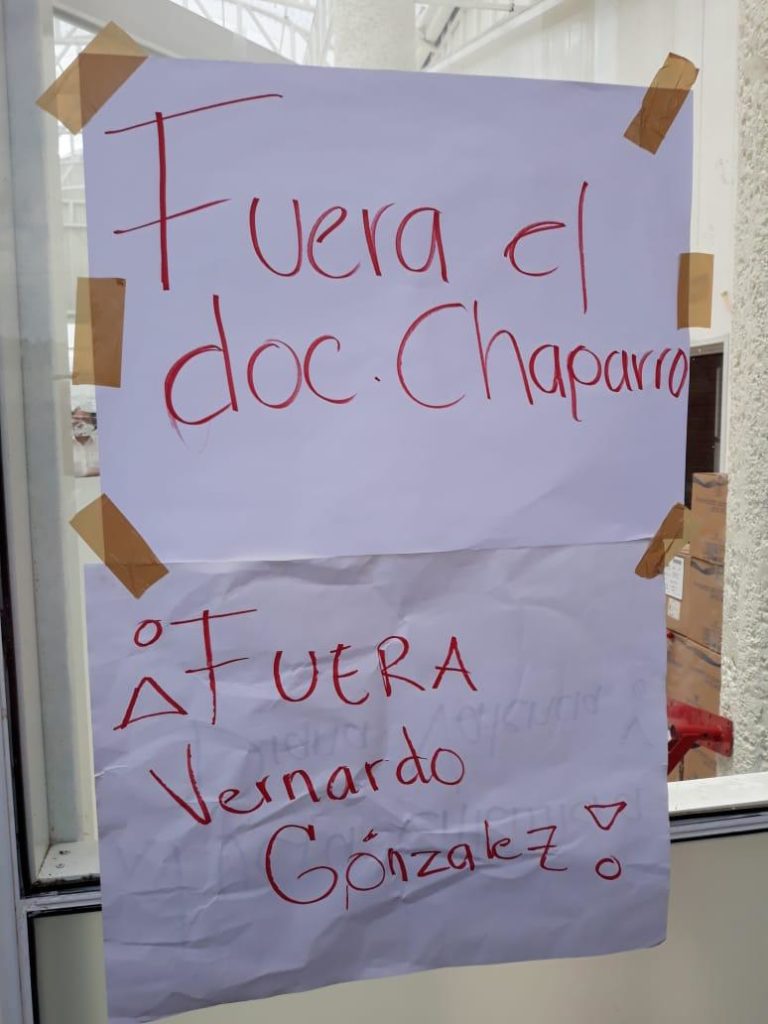 Fuera el
doc. Chaparro
¡FUERA
Vernardo
Gónzalez!